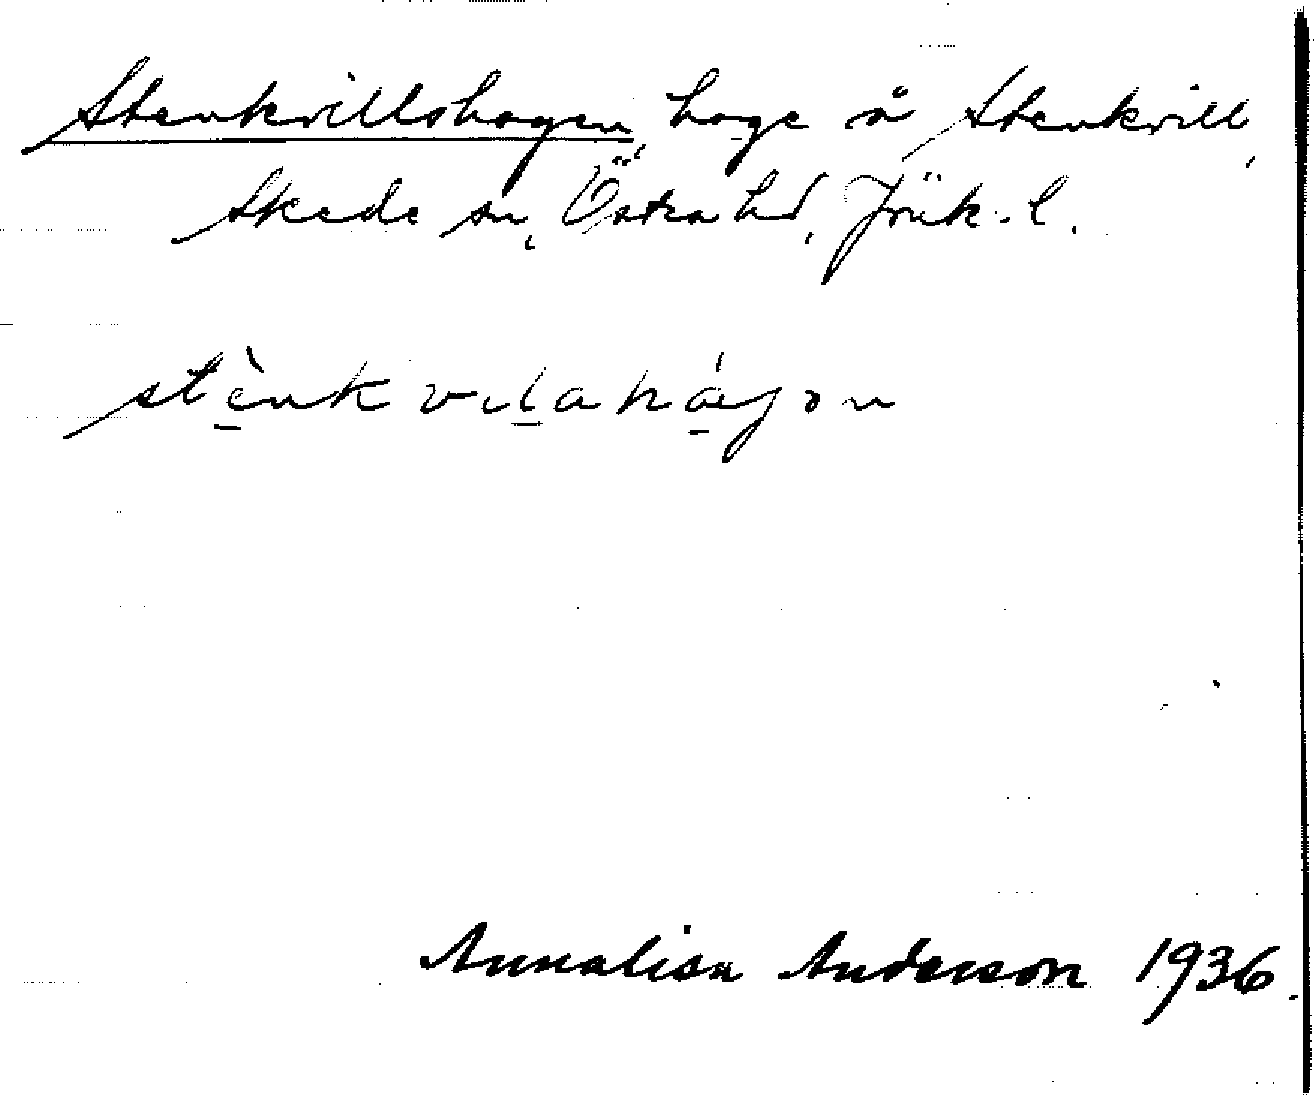 Stenkvillshagen, hage å Stenkvill,
Skede sn, Östra hd, Jönk. l.
stènkvilahágən
Annalisa Anderson 1936.